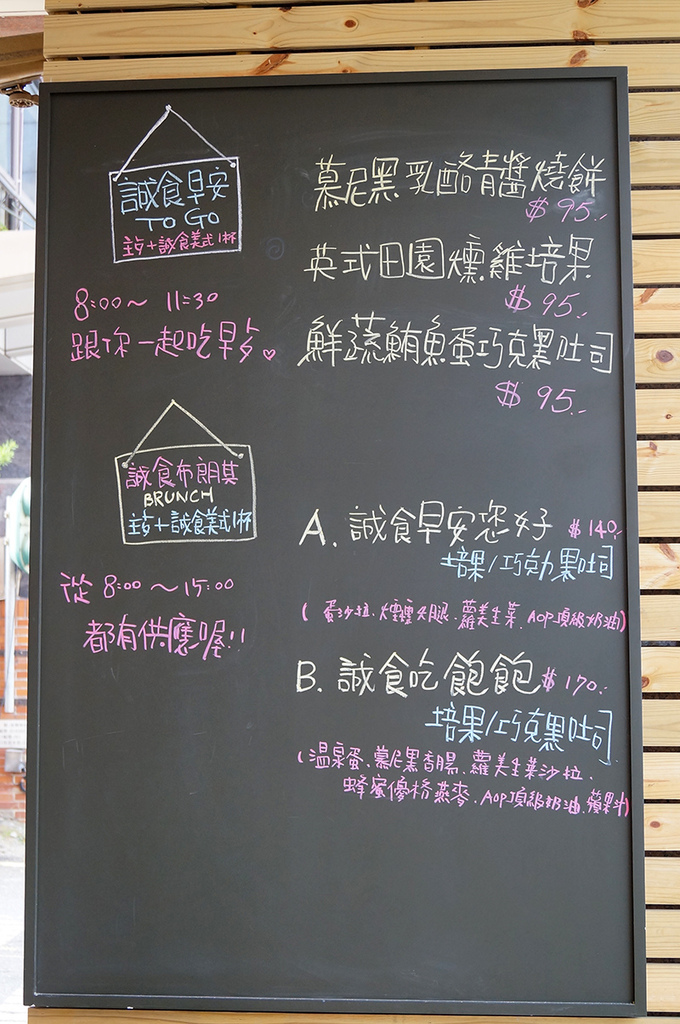 誠食早安
TO GO
主占+誠食美式1杯
8:00～ 11:30
跟你一起吃早乡♡
慕尼黑乳酪青醬燒餅
$95.
英式田園燻雞培果
$95.
鮮蔬鮪魚蛋巧克黑吐司
$95.
誠食布朗其
BRUNCH
主占+誠食美式1杯
從 8:00 ～15:00
都有供應喔!!
A. 誠食早安您好 $140.
培果/巧克力黑吐司
(蛋沙拉.燻雞火腿.蘿美生菜.AOP頂級奶油)
B. 誠食吃飽飽 $170.
培果/巧克黑吐司
(溫泉蛋.慕尼黑香腸.蘿美生菜沙拉.
蜂蜜優格燕麥.AOP頂級奶油.蘋果汁)